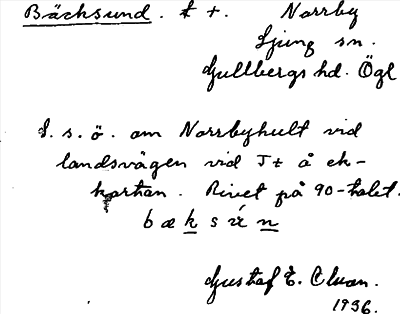 Bäcksund. t t. Norrby
Ljung sn.
Gullbergs hd. Ögl
t. s. ö. om Norrbyhult vid
landsvägen vid Jt å ek-
kartan. Rivet på 90-talet.
bæksún
Gustaf E.
1936.